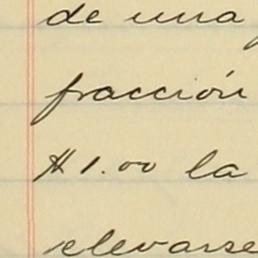 de una
fracción
$1.00 la
elevarse